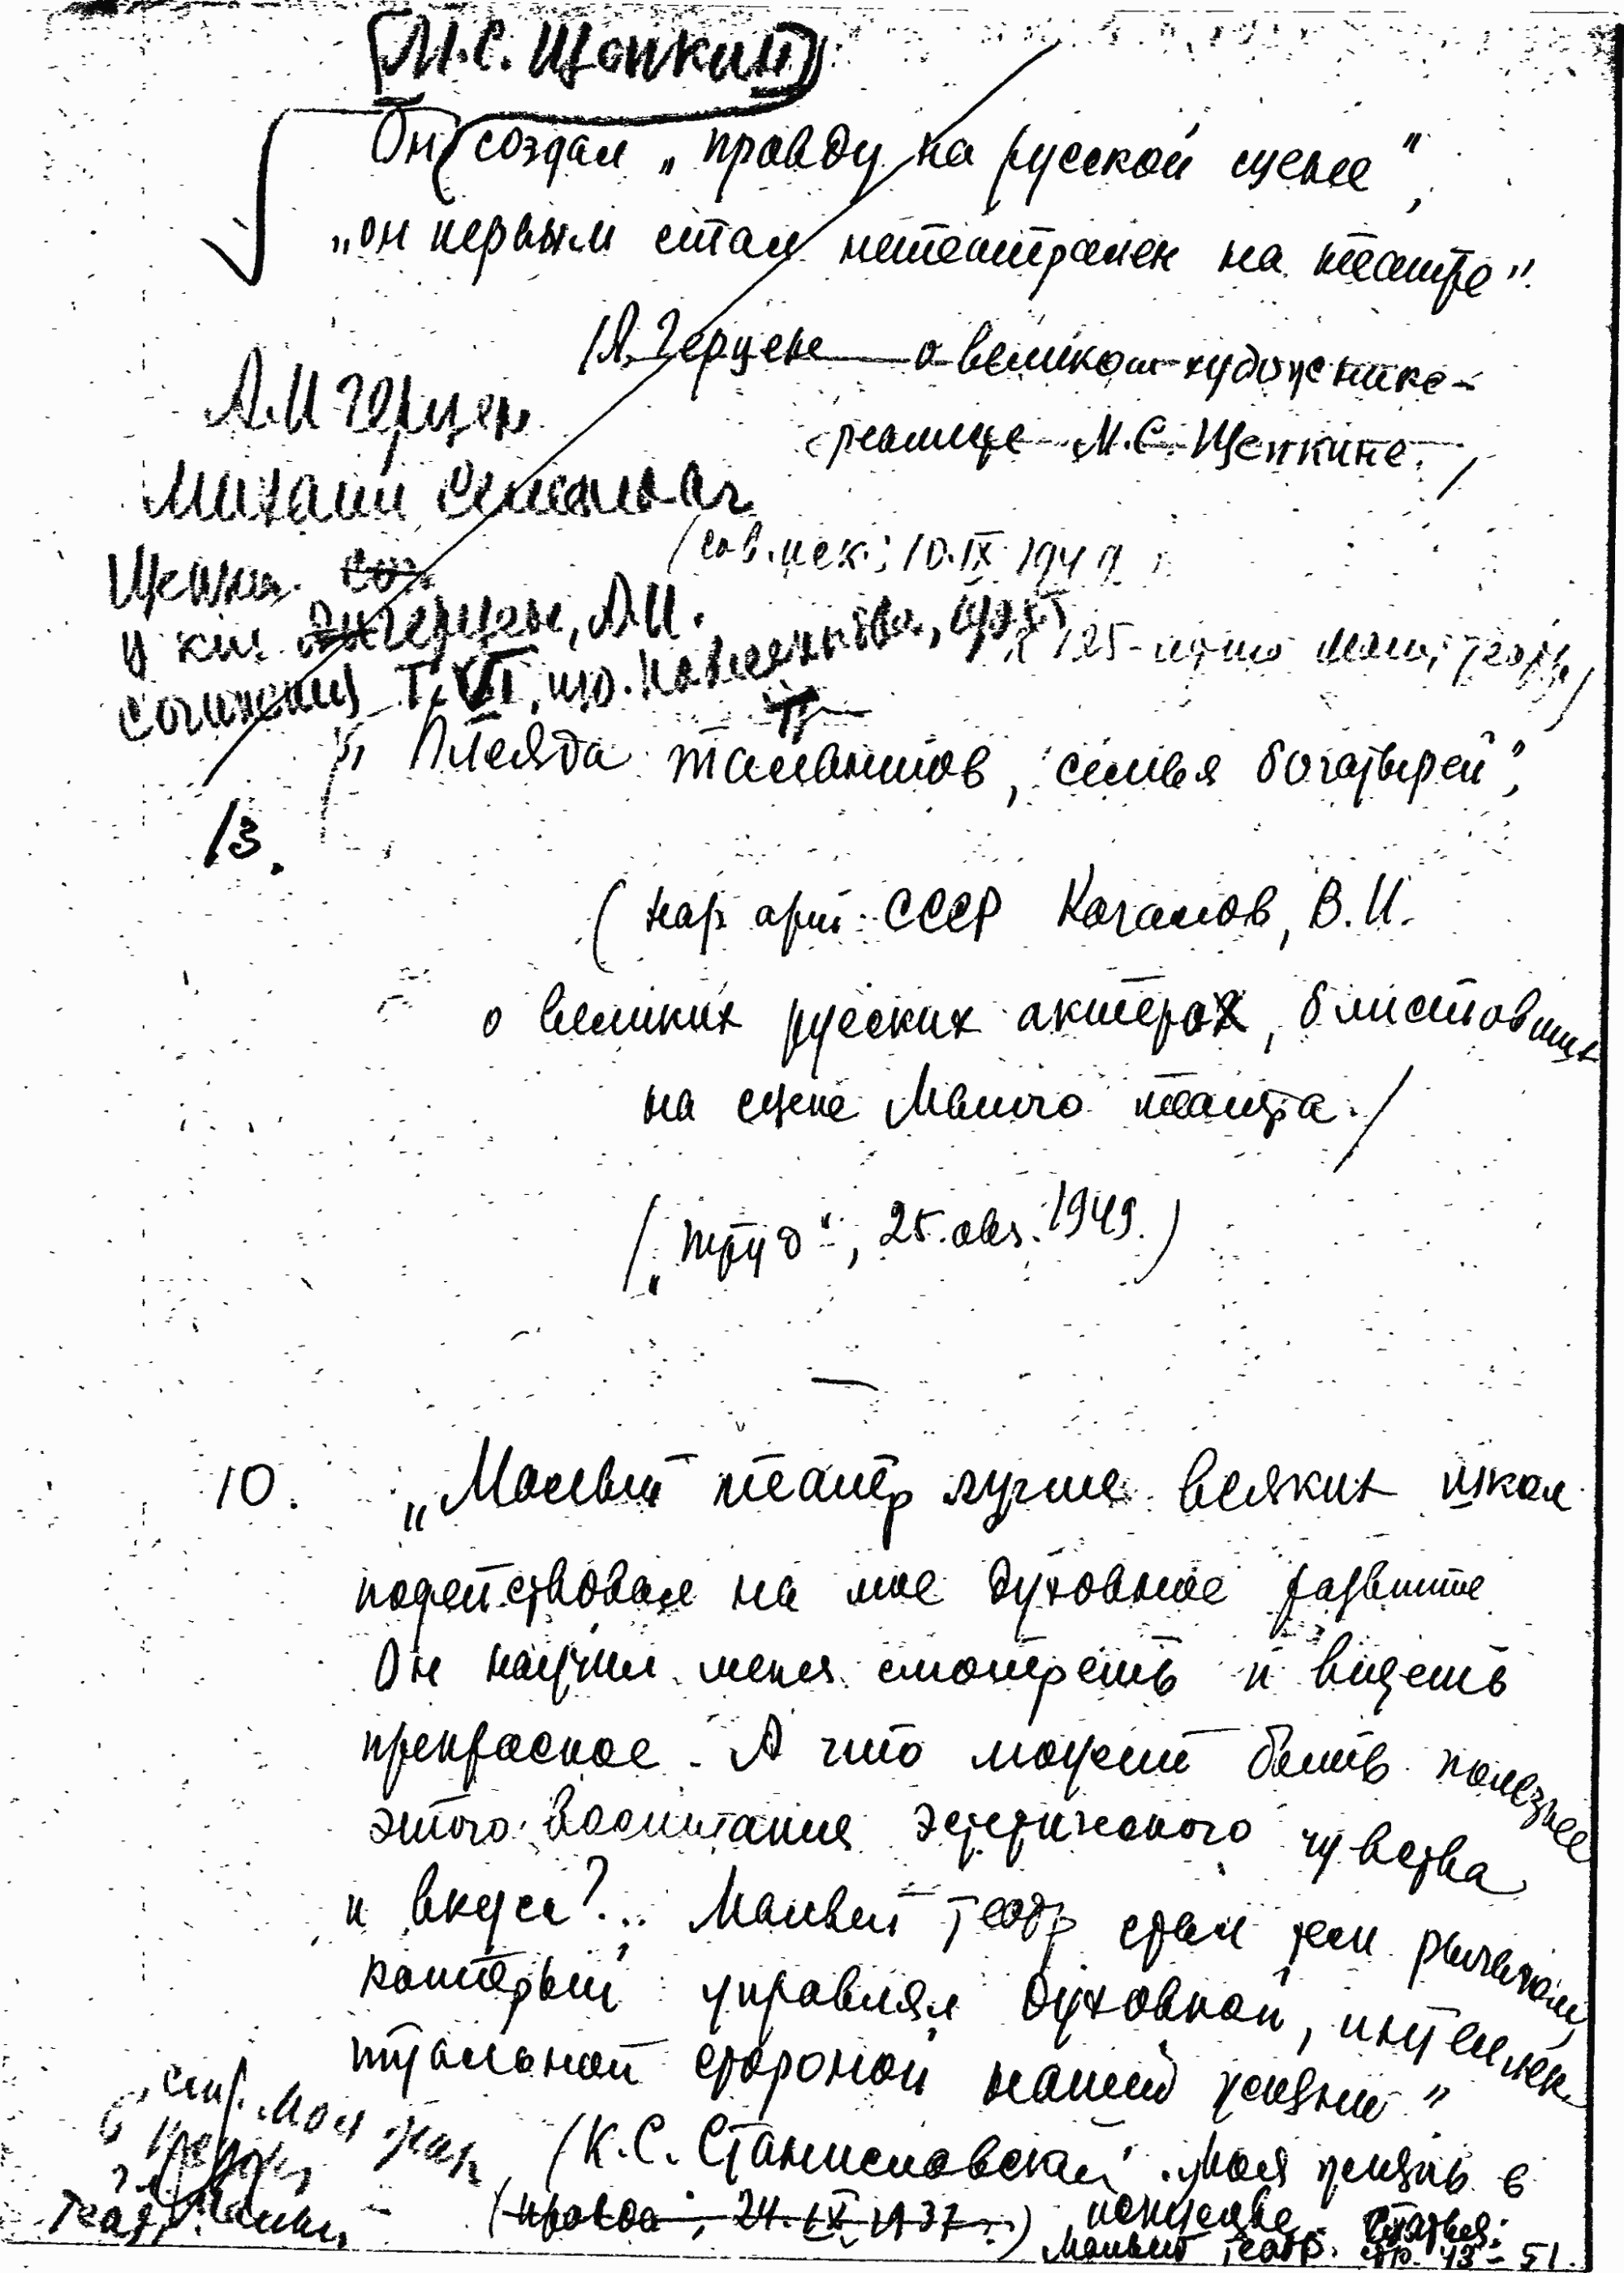 М.С. Щепкин
Он создал „правду на русской сцене",
„он первым стал нетеатрален на театре"
/А. Герцене о великом художнике-
реалисте М.С. Щепкине./
А.И Герцен
Михаил Семенович
/сов. иск.; 10.IX 1949
Щепкин. соч.
в кн. Герцен, А.И.
к 125-летию Мал. театра)
Сочинения Т. VI, изд. Павленкова,
„Плеяда талантов, семья богатырей",
13.
(нар арт. СССР Качалов, В.И.
о великих русских актерах, блиставших
на сцене Малого театра./
(„труд", 25. окт. 1949.)
10. „Малый театр лучше всяких школ
подействовал на мое духовное развитие
Он научил меня смотреть и видеть
прекрасное. А что может быть полезнее
этого воспитания эстетического чувства
и вкуса?.. Малый театр стал тем рычагом,
который управлял духовной, интеллек
туальной стороной нашей жизни"
(К.С. Станиславский. Моя жизнь в
искусстве. Статья:
(правда, 24.IX 1937.)
Малый театр. стр. 43-51.